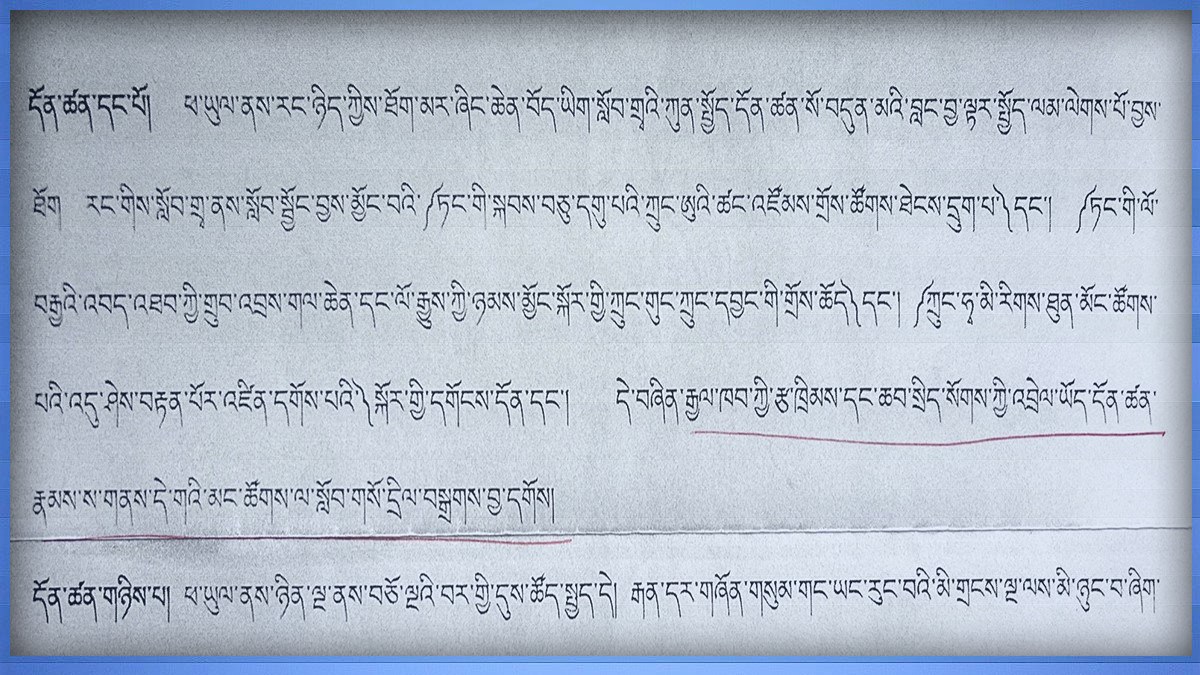 དོན་ཚན་དང་པོ། ཕ་ཡུལ་ནས་རང་ཉིད་ཀྱིས་ཐོག་མར་ཞིང་ཆེན་བོད་ཡིག་སློབ་གྲྭའི་ཀུན་སྤྱོད་དོན་ཚན་སོ་བདུན་མའི་བླང་བྱ་ལྟར་སྤྱོད་ལམ་ལེགས་པོ་བྱས་
ཐོག རང་གིས་སློབ་གྲྭ་ནས་སློབ་སྦྱོང་བྱས་མྱོང་བའི་༼ཏང་གི་སྐབས་བཅུ་དགུ་པའི་ཀྲུང་ཨུའི་ཚང་འཛོམས་གྲོས་ཚོགས་ཐེངས་དྲུག་པ་༽དང་། ༼ཏང་གི་ལོ་
བརྒྱའི་འབད་འཐབ་ཀྱི་གྲུབ་འབྲས་གལ་ཆེན་དང་ལོ་རྒྱུས་ཀྱི་ཉམས་མྱོང་སྐོར་གྱི་ཀྲུང་གུང་ཀྲུང་དབྱང་གི་གྲོས་ཆོད༽དང་། ༼ཀྲུང་ཧྭ་མི་རིགས་ཐུན་མོང་ཚོགས་
པའི་འདུ་ཤེས་བརྟན་པོར་འཛིན་དགོས་པའི༽སྐོར་གྱི་དགོངས་དོན་དང་། དེ་བཞིན་རྒྱལ་ཁབ་ཀྱི་རྩ་ཁྲིམས་དང་ཆབ་སྲིད་སོགས་ཀྱི་འབྲེལ་ཡོད་དོན་ཚན་
རྣམས་ས་གནས་དེ་གའི་མང་ཚོགས་ལ་སློབ་གསོ་དྲིལ་བསྒྲགས་བྱ་དགོས།
དོན་ཚན་གཉིས་པ། ཕ་ཡུལ་ནས་ཉིན་ལྔ་ནས་བཅོ་ལྔའི་བར་གྱི་དུས་ཚོད་སྤྱད་དེ། རྒན་དར་གཞོན་གསུམ་གང་ཡང་རུང་བའི་མི་གྲངས་ལྔ་ལས་མི་ཉུང་བ་ཞིག་